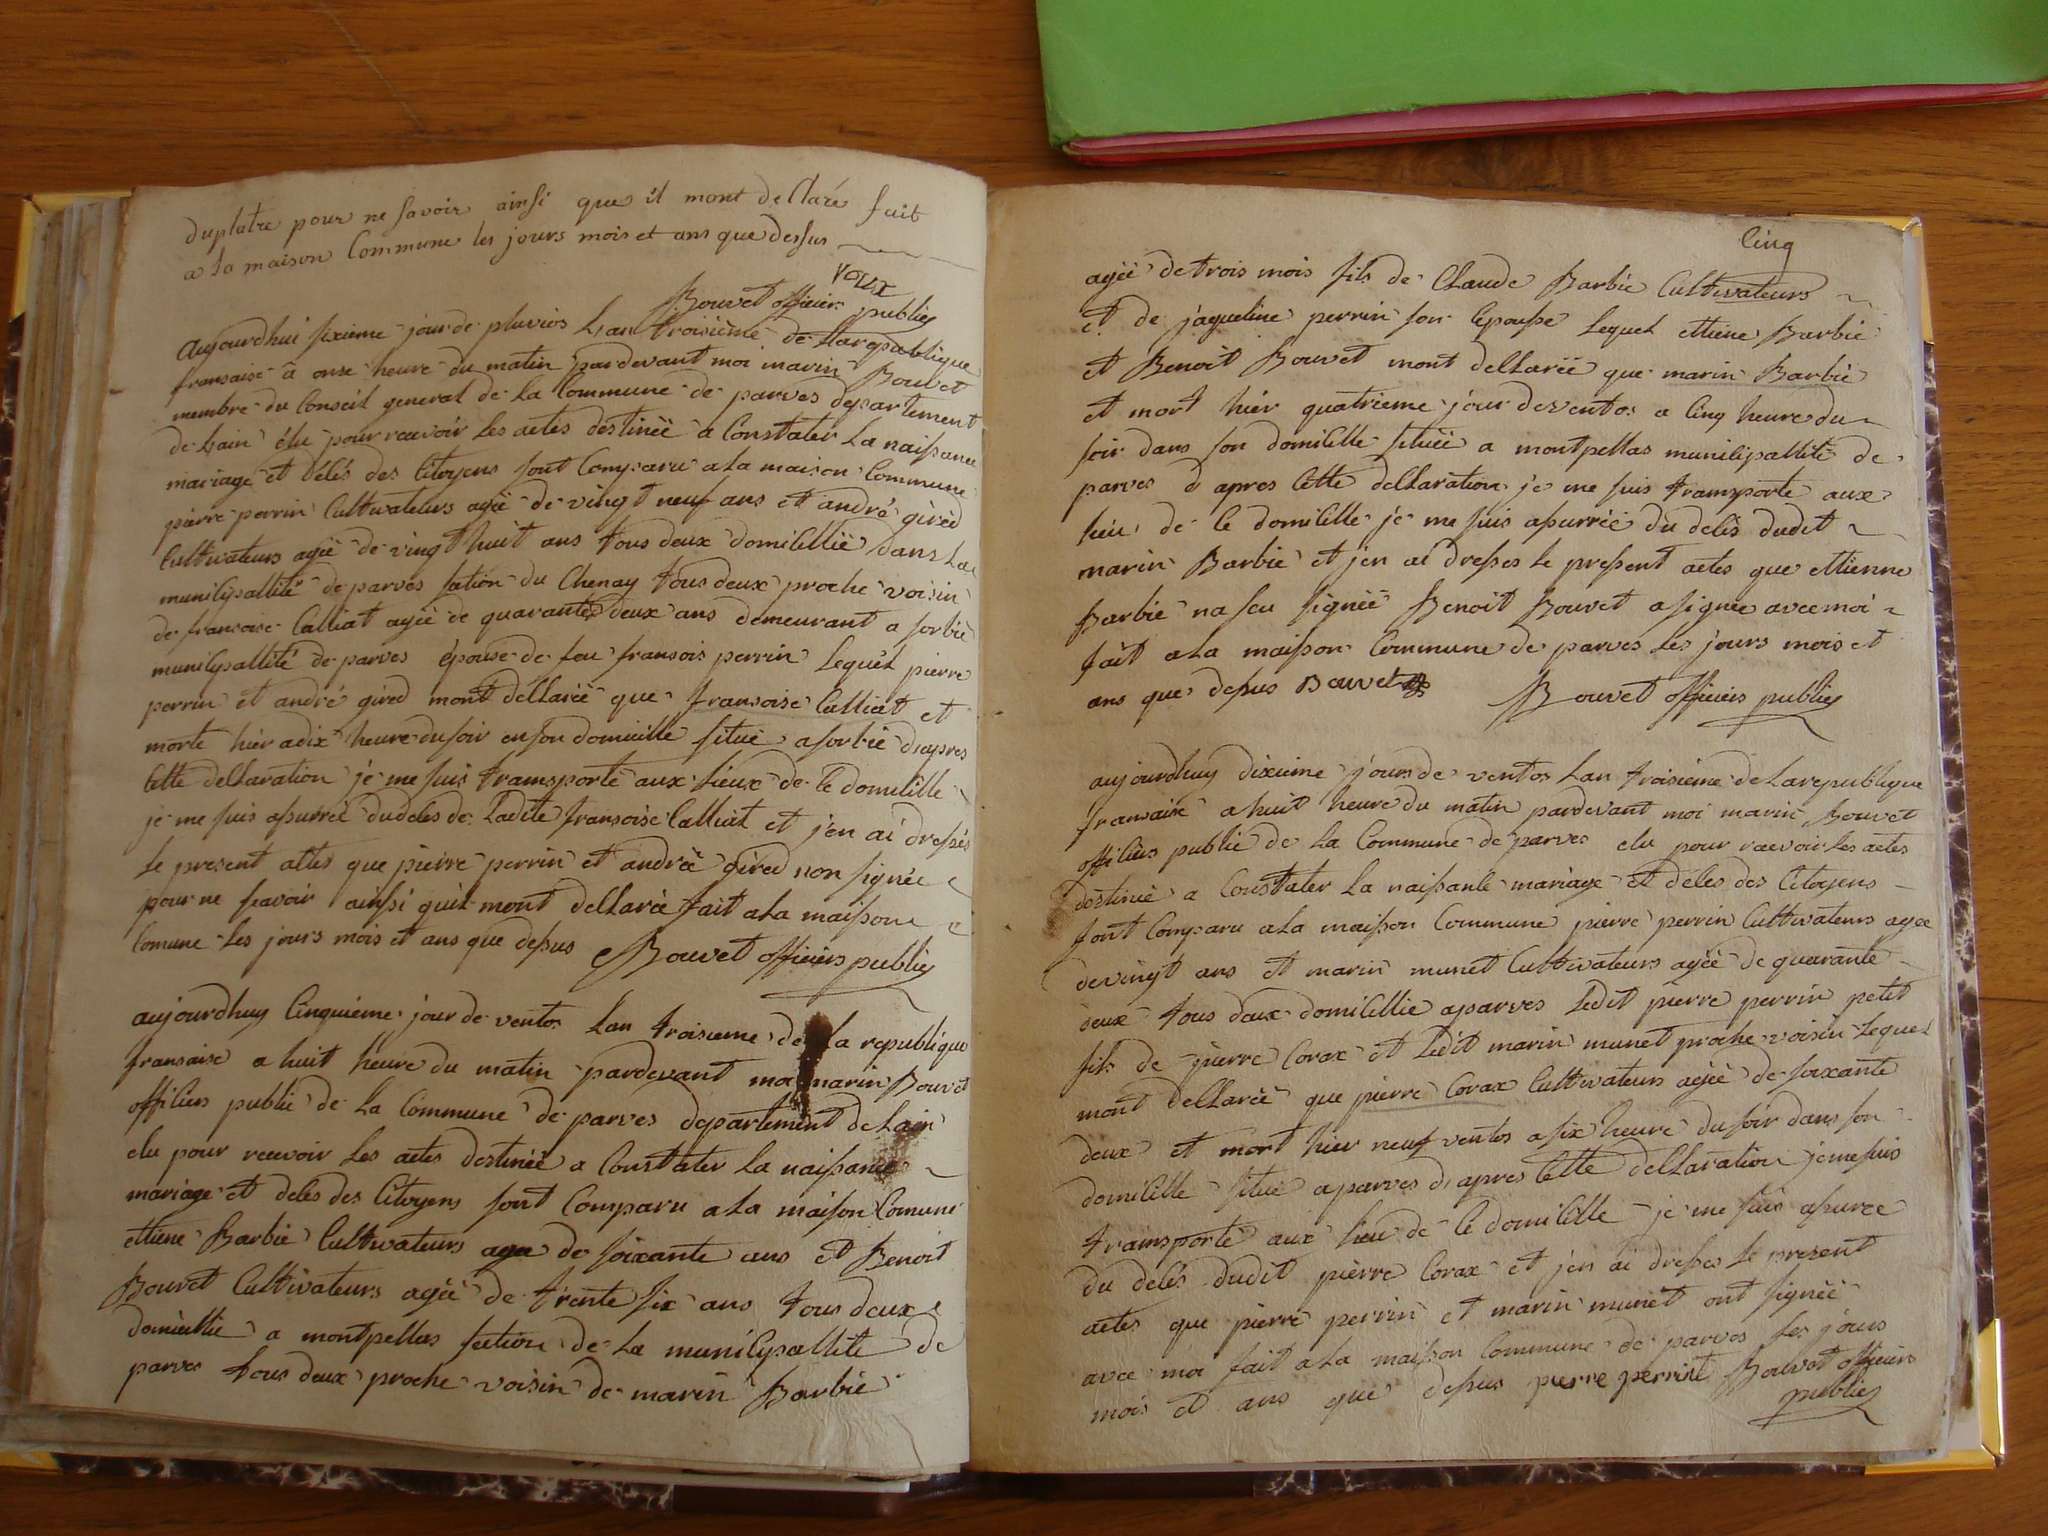 duplatre pour ne savoir ainsi que il mont dellaré fait
a la maison Commune les jours mois et ans que dessus
Bouvet officier public
aujourdhui sixieme jour de pluvios Lan troisième de Larepublique
fransaise a onze heure du matin pardevant moi marin Bouvet
membre du Conseil general de La Commune de parves departement
de Lain élu pour recevoir Les actes destinée a Constater La naissance
mariage et délés des Citoyens sont Comparu a La maison Commune
pierre perrin Cultivateurs agée de vingt neuf ans et andré gired
Cultivateurs agée de vingt huit ans tous deux domicillié dans La
municipallité de parves sation du Chenay tous deux proche voisin
de fransoise Calliat agée de quarante deux ans demeurant a sorbie
municipallité de parves épouse de feu fransois perrin Lequel pierre
perrin et andré gired mont dellareé que fransoise Calliat et
morte hier a dix heure du soir en son domicille situé a sorbie d'apres
Cette dellaration je me suis transporté aux Lieux de Ce domicille
je me suis assurreé du deles de Ladite fransoise Calliat et j'en ai dressés
Le present actes que pierre perrin et andreé gired non signée
pour ne savoir ainssi quil mont dellareé fait a La maisson
Comune Les jours mois et ans que dessus Bouvet officiers public
aujourdhuy Cinquième jour de ventos Lan troisieme de La republique
fransaise a huit heure du matin pardevant moi marin Bouvet
officiers public de La Commune de parves departement de Lain
elu pour recevoir Les actes destinée a Constater La naissance
mariage et deles des Citoyens sont Comparu a La maison Comune
ettiene Barbie Cultivateurs agee de soixante ans et Benoit
Bouvet Cultivateurs agée de trente six ans tous deux
domicillie a montpellas section de La municipallité de
parves tous deux proche voisin de marin Barbie
Cinq
agée de trois mois fils de Claude Barbie Cultivateurs
et de jaqueline perrin son Epousse Lequel ettiene Barbie
et Benoit Bouvet mont dellareé que marin Barbie
et mort hier quatrieme jour de ventos a Cinq heure du
soir dans son domicille situeé a montpellas municipallité de
parves d apres Cette dellaration je me suis transporte aux
Lieu de Ce domicille je me suis assurreé du deles dudit
marin Barbie et jen ai dresses Le pressent actes que ettienne
Barbie na seu signeé Benoit Bouvet a signee avec moi
fait a La maisson Commune de parves Les jours mois et
ans que dessus Bouvet Bouvet officiers public
aujourdhuy dixieme jours de ventos Lan troisième de Larepublique
fransaise a huit heure du matin pardevant moi marin Bouvet
officiers public de La Commune de parves elu pour recevoir Les actes
destinée a Constater La naissante mariage et deles des Citoyens
sont Comparu a La maisson Commune pierre perrin Cultivateurs agee
de vingt ans et marin munet Cultivateurs agée de quarante
deux tous deux domicillie a parves Ledit pierre perrin petit
fils de pierre Corax et Ledit marin munet proche voisin Lequel
mont dellareé que pierre Corax Cultivateurs agée de soixante
deux et mort hier neuf ventos a six heure du soir dans son
domicille situé a parves d apres Cette dellaration je me suis
transporté aux Lieu de Ce domicille je me suis assuree
du delés dudit pierre Corax et j'en ai dresses Le present
actes que pierre perrin et marin munet ont signeé
avec moi fait a La maisson Commune de parves Les jours
mois et ans que dessus pierre perrin Bouvet officiers
public